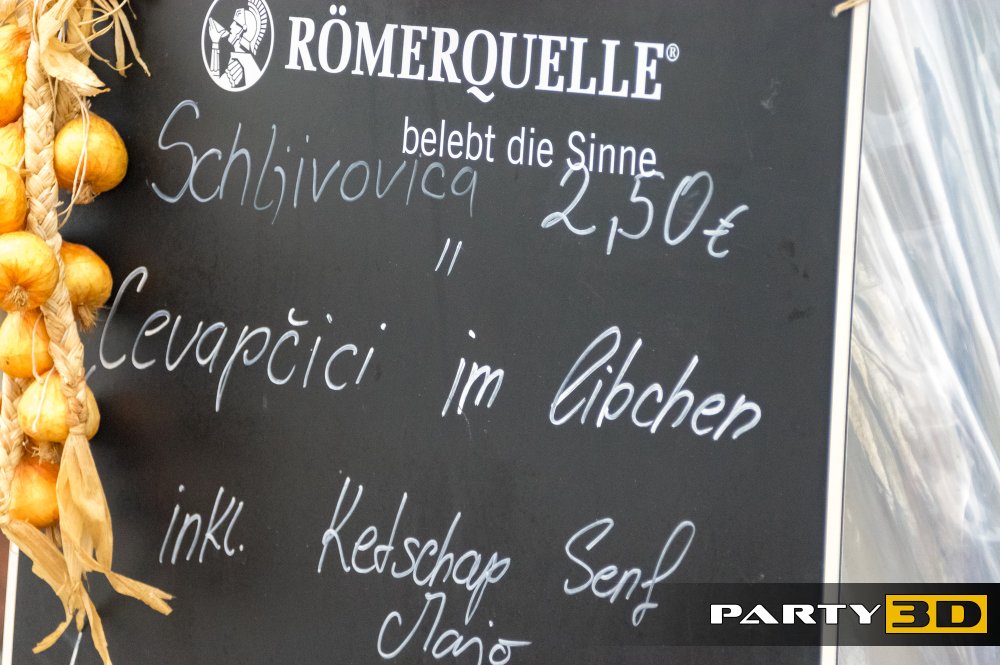 RÖMERQUELLE®
belebt die Sinne
Schljivovica 2,50€
"
Cevapčici im libchen
inkl. Ketschap Senf
Majo
PARTY 3D